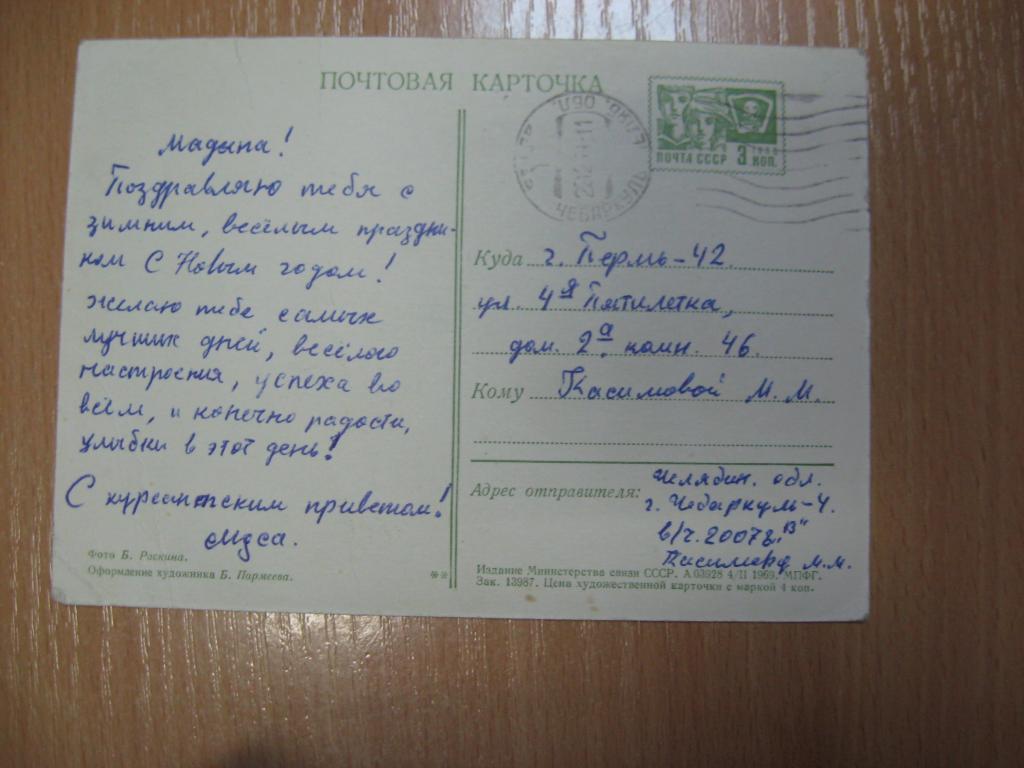 ПОЧТОВАЯ КАРТОЧКА
Мадина!
Поздравляю тебя с
зимним, весёлым праздни-
ком С Новым годом!
желаю тебе самых
лучших дней, весёлого
настроения, успеха во
всём, и конечно радости,
улыбки в этот день!
С курсантским приветом!
Муса.
Фото Б. Раскина.
Оформление художника Б. Пармеева.
**
ЧЕБАРКУЛЬ
ОБЛ.
ПОЧТА СССР 3 КОП.
1966
Куда г. Пермь-42.
ул. 4я Пятилетка,
дом. 2а. комн. 46.
Кому Касимовой М. М.
Адрес отправителя: Челябин. обл.
г. Чебаркуль-4.
в/ч. 20078 "В"
Касимов М. М.
Издание Министерства связи СССР. А 03928 4/II 1969. МПФГ.
Зак. 13987. Цена художественной карточки с маркой 4 коп.